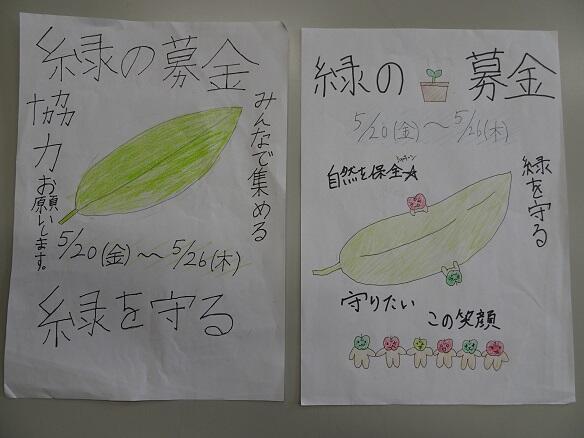 緑の募金
みんなで集める
協力お願いします。
5/20(金)〜5/26(木)
緑を守る
緑の募金
5/20(金)〜5/26(木)
緑を守る
自然を保全
守りたい
この笑顔